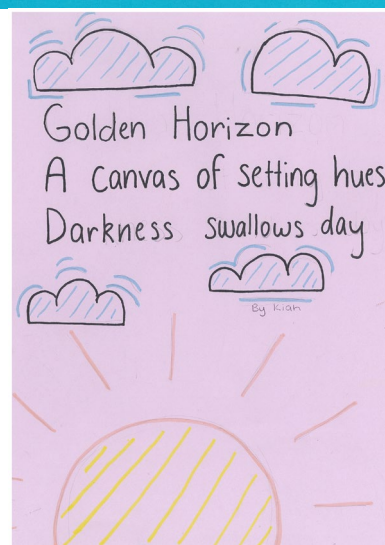 Golden Horizon
A canvas of setting hues
Darkness swallows day
By Kiah